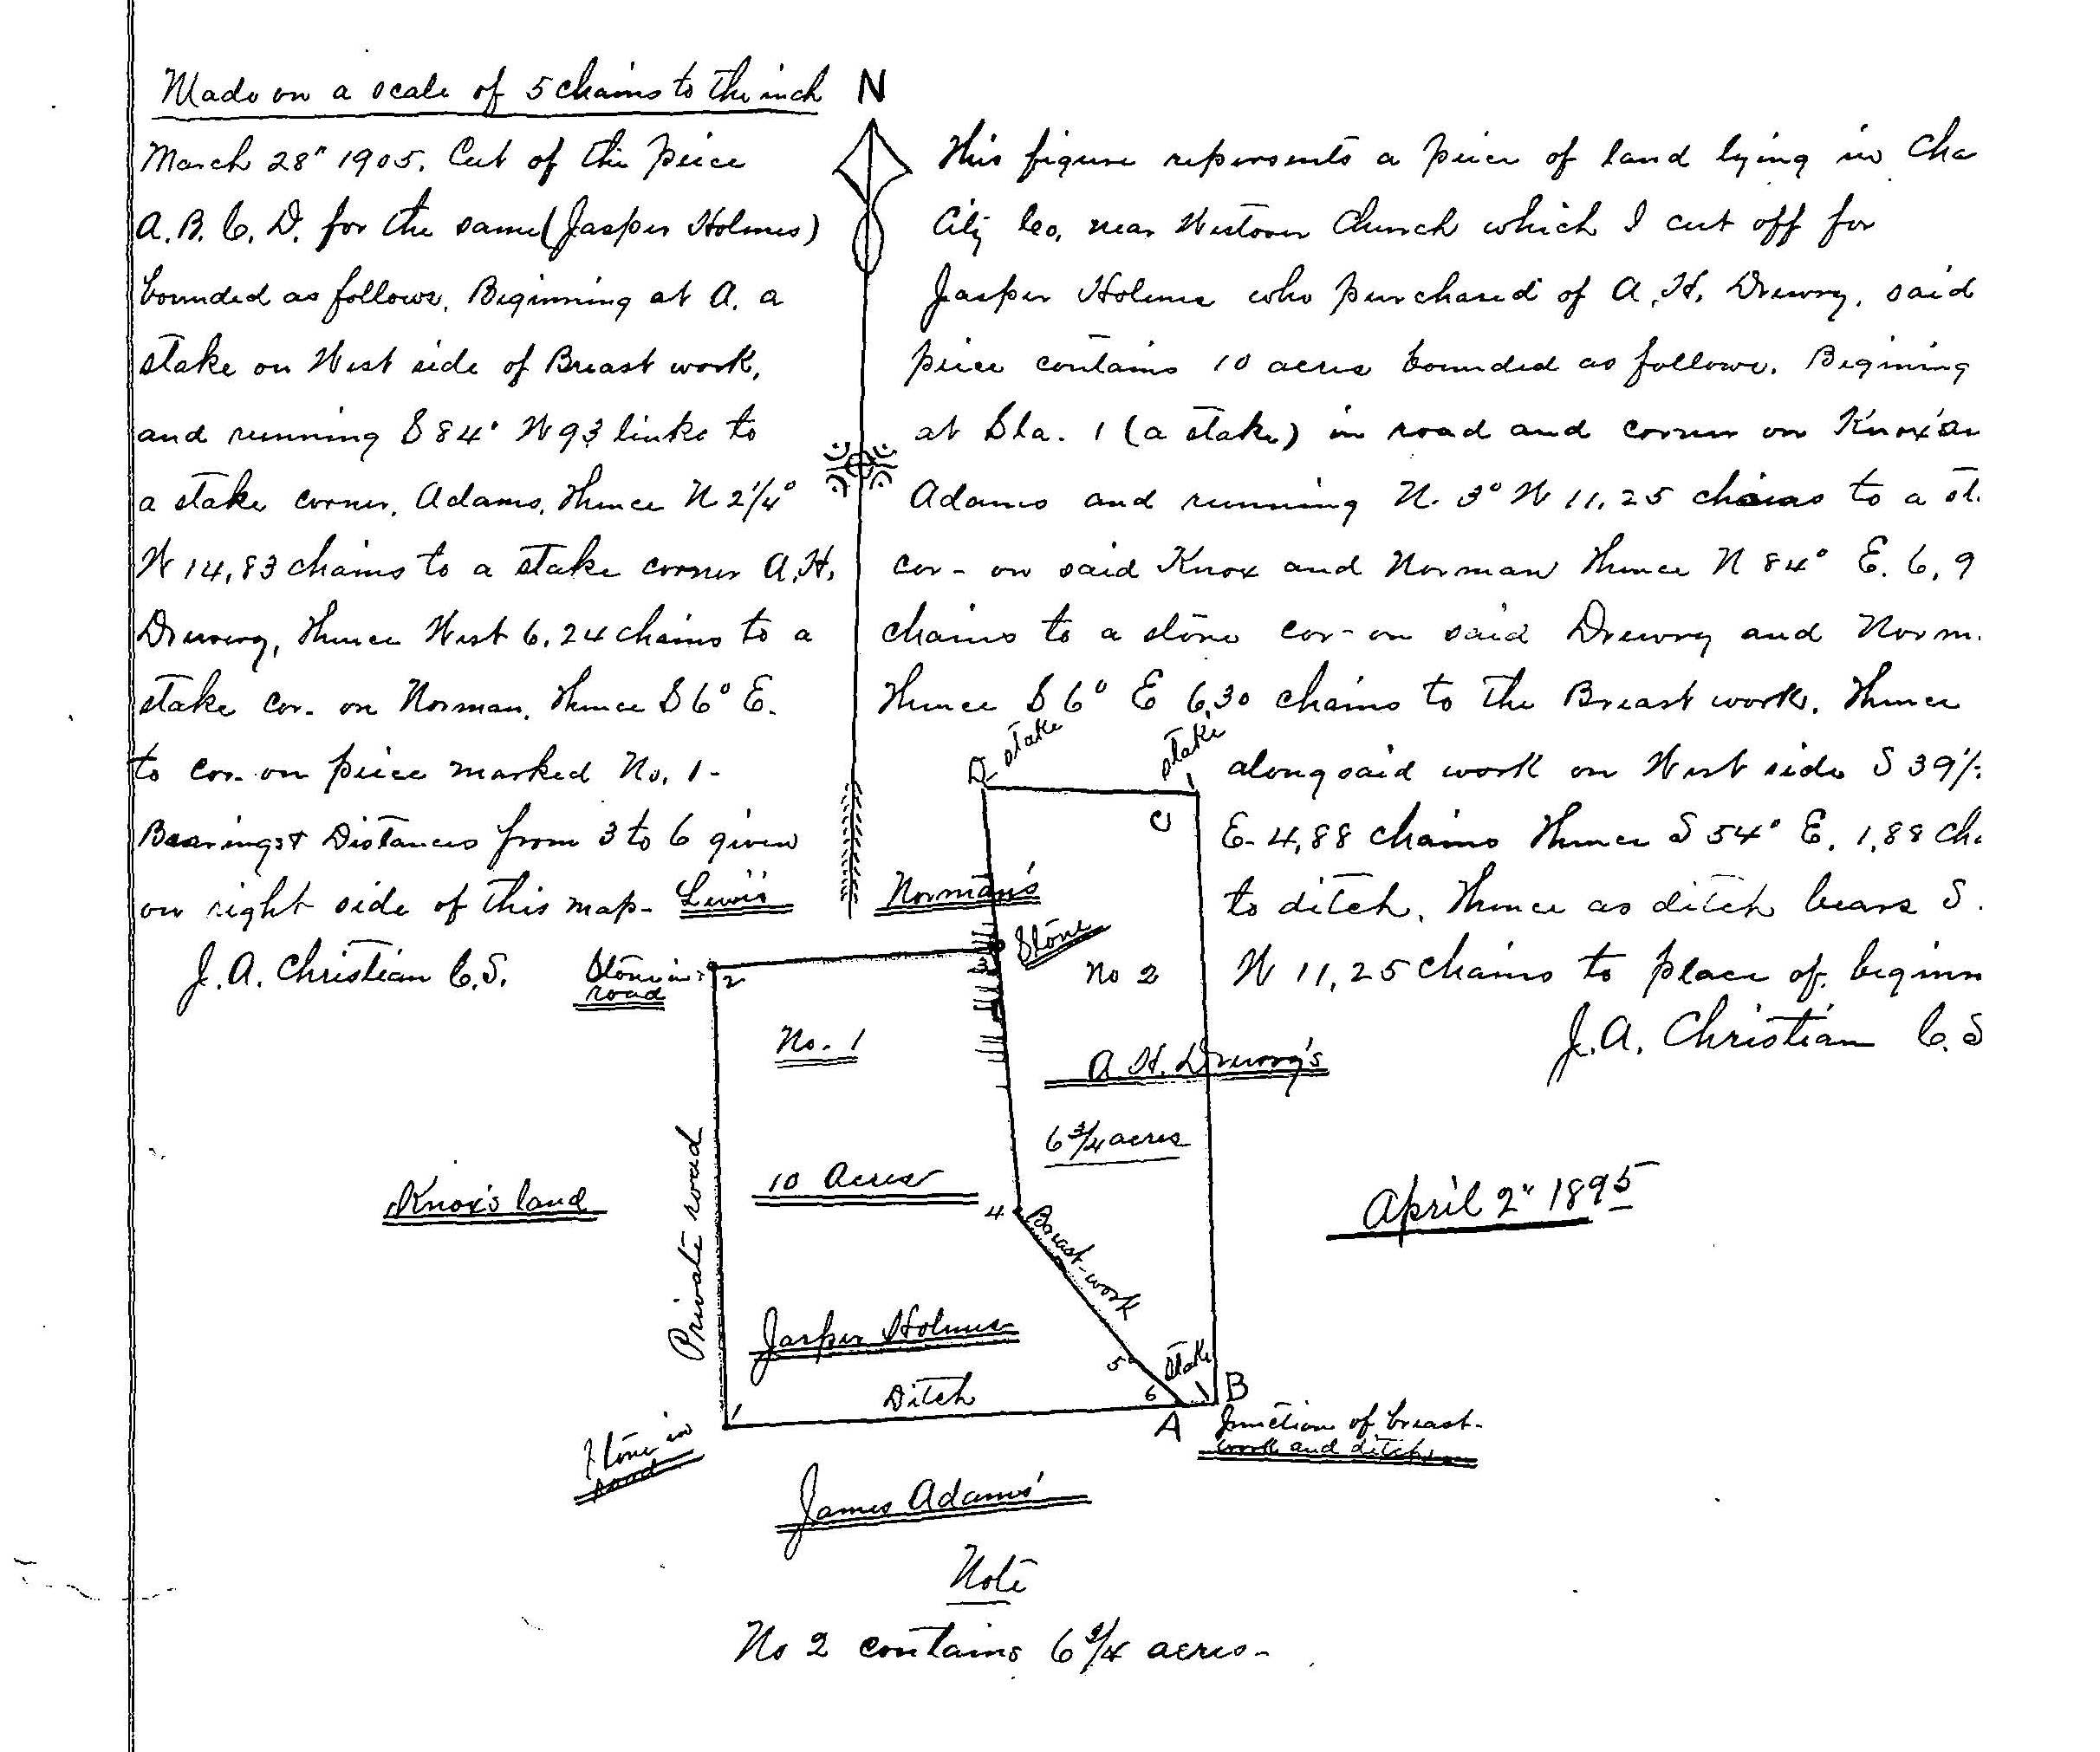 Made on a scale of 5 chains to the inch
March 28" 1905. Cut of the peice
A. B. C. D. for the same (Jasper Holmes)
bounded as follows. Beginning at A. a
stake on West side of Breast work,
and running S 84° W 93 links to
a stake corner, Adams, thence N 2 1/4°
W 14,83 chains to a stake corner A. H.
Drewry, thence West 6,24 chains to a
stake cor- on Norman, thence S 6° E.
to cor- on peice marked No. 1-
Bearings & Distances from 3 to 6 given
on right side of this map-
J. A. Christian C. S.
N
This figure repersents a peice of land lying in Cha
City Co. near Westover Church which I cut off for
Jasper Holmes who purchased of A. H. Drewry, said
peice contains 10 acres bounded as follows. Begining
at Sta. 1 (a stake) in road and corner on Knox's
Adams and running N. 3° W 11,25 chains to a st.
cor- on said Knox and Norman thence N 84° E. 6,9
chains to a stone cor- on said Drewry and Norm.
thence S 6° E 6,30 chains to the Breast work, thence
along said work on West side S 39 1/
E- 4,88 chains thence S 54° E. 1,88 ch.
to ditch, thence as ditch bears S.
W 11,25 chains to place of beginn
J. A. Christian C. S
D stake
stake
C
Lewis
Norman's
Stone in road
2
3
Stone
No 2
No. 1
A. H. Drewry's
6 3/4 acres
Private road
10 Acres
Knox's land
4
Breast-work
April 2" 1895
Jasper Holmes
5
Stake
6
Ditch
B
1
A
Junction of breast-
work and ditch
Stone in
road
James Adams'
Note
No 2 contains 6 3/4 acres-